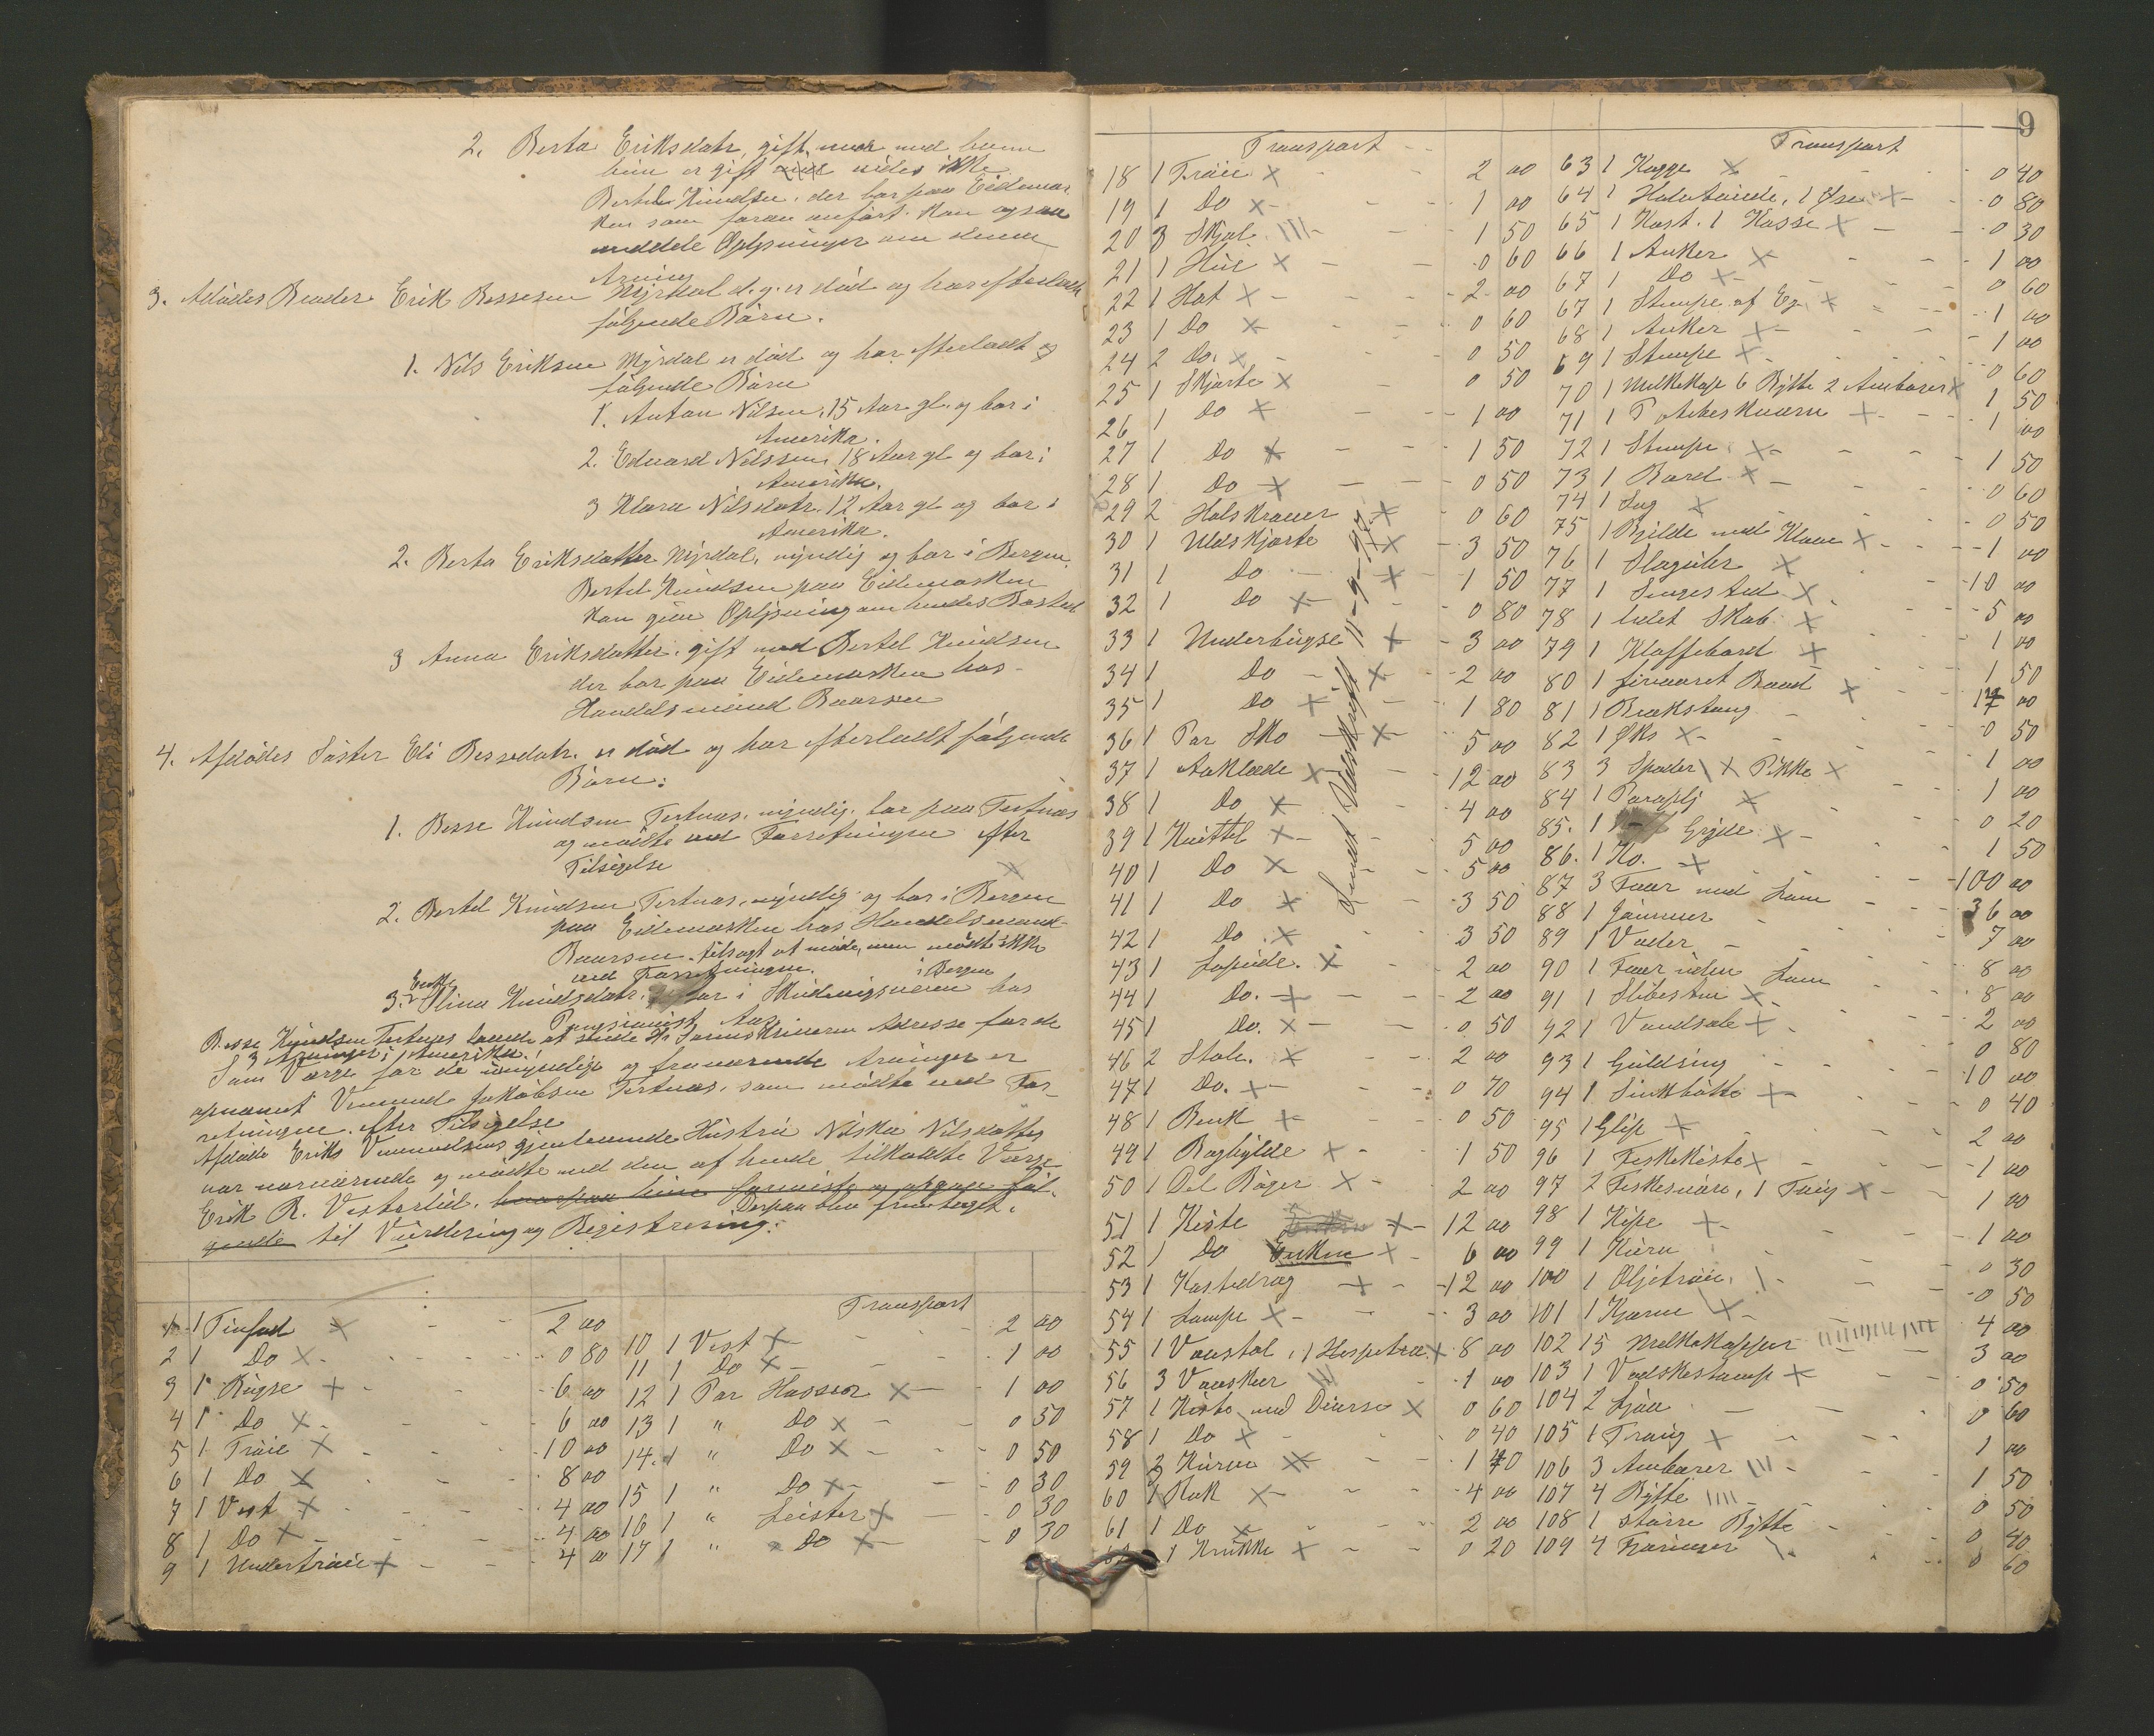 2. Berta Eriksdatr, gift, men med hvem
hun er gift vides ikke
Bertel Knudsen, der bor paa Eidemar
ken som foran anført. Kan ogsaa
meddele Oplysninger om denne
Arving
3. Afdødes Broder Erik Bessesen Myrdal d.y. er død og har efterladt
følgende Børn.
1. Nils Eriksen Myrdal er død og har efterladt sig
følgende Børn
1. Anton Nilsen, 15 Aar gl. og bor i
Amerika.
2. Edvard Nilssen, 18 Aar gl og bor i
Amerika.
3 Klara Nilsdatr. 12 Aar gl og bor i
Amerika.
2. Berta Eriksdatter Myrdal, myndig og bor i Bergen.
Bertel Knudsen paa Eidemarken
kan give Oplysning om hendes Bosted
3 Anna Eriksdatter, gift med Bertel Knudsen
der bor paa Eidemarken hos
Handelsmand Baarsen
4. Afdødes Søster Eli Bessedatr. er død og har efterladt følgende
Børn:
1. Besse Knudsen Tertnæs, myndig, bor paa Tertnæs
og mødte ved Forretningen efter
Tilsigelse
2. Bertel Knudsen Tertnæs, myndig og bor i Bergen
paa Eidemarken hos Handelsmand
Baarsen. tilsagt at møde, men mødte ikke
ved Forretningen.
3. Enke Olina Knudsdatr. bor i Skudevigsveien i Bergen hos
Pensionist Aas
Besse Knudsen Tertnes lovede at sende Hr Sorenskriveren Adresse for de
3 Arvinger i Amerika!
Som Værge for de umyndige og fraværende Arvinger er
opnævnt Vemund Jakobsen Tertnæs, som mødte ved For-
retningen efter Tilsigelse
Afdøde Eriks Vemundsens gjenlevende Hustru Niska Nilsdatter
var nærværende og mødte med den af hende tilkaldte Værge
Erik R. Vestrelid, hvorpaa hun foreviste og opgav føl-
gende Derpaa blev fremtaget
til Vurdering og Registrering:
Transport
1 1 Tinfad X 2 00
2 1 Do X 0 80
3 1 Buxe X 6 00
4 1 Do X 6 00
5 1 Trøie X 10 00
6 1 Do X 8 00
7 1 Vest X 4 00
8 1 Do X 4 00
9 1 Undertrøie X 4 00
10 1 Vest X 2 00
11 1 Do X 1 00
12 1 Par Hosser X 1 00
13 1 " Do X 0 50
14 1 " Do X 0 50
15 1 " Do X 0 30
16 1 " Leister X 0 30
17 1 " Do X 0 30
9
Transport
18 1 Trøie X 2 00
19 1 Do X 1 00
20 3 Skjol III 1 50
21 1 Hue X 0 60
22 1 Hat X 2 00
23 1 Do X 0 60
24 2 Do. X 0 50
25 1 Skjorte X 0 50
26 1 Do X 1 00
27 1 Do X 1 50
28 1 Do X 0 50
29 2 Halskraver X 0 60
30 1 Uldskjorte X 3 50
31 1 Do X 1 50
32 1 Do X 0 80
33 1 Underbugse X 3 00
34 1 Do X 2 00
35 1 Do X 1 80
36 1 Par Sko X 5 00
37 1 Aaklæde X 12 00
38 1 Do X 4 00
39 1 Kvittel X 5 00
40 1 Do X 5 00
41 1 Do X 3 50
42 1 Do. X 3 50
43 1 Løpude. X 2 00
44 1 Do. X 2 00
45 1 Do. X 0 50
46 2 Stole. X 2 00
47 1 Do. X 0 70
48 1 Benk X 0 50
49 1 Boghylde X 1 50
50 1 Del Bøger X 2 00
51 1 Kiste X 12 00
52 1 Do Enken X 6 00
53 1 Kastedrag X 12 00
54 1 Lampe X 3 00
55 1 Vævstol, 1 Hespetræ X 8 00
56 3 Vævskeer III 1 00
57 1 Kiste med Diverse X 0 60
58 1 Do X 0 40
59 3 Kurve X 1 70
60 1 Rok X 4 00
61 1 Do X 2 00
1 Krukke X 0 20
Sendt Udskrift 11-9-97.
Transport
63 1 Kagge X 0 40
64 1 Halvtønde, 1 Øse X 0 80
65 1 Kost. 1 Kasse X 0 30
66 1 Anker X 1 00
67 1 Do X 0 60
67 1 Stampe af Eg X 1 00
68 1 Anker X 1 00
69 1 Stampe X 0 60
70 1 Melkekop 6 Bytte 2 Ambarer X 1 50
71 1 X 1 00
72 1 Stampe. X 1 50
73 1 Bord X 0 60
74 1 Sag X 0 50
75 1 Bjelde med Klave X 1 00
76 1 Slaguhr X 10 00
77 1 Sengested X 5 00
78 1 lidet Skab X 1 00
79 1 Klaffebord X 1 50
80 1 firaaret Baad X 17 00
81 1 Brækstang 0 50
82 1 Øks X 1 00
83 3 Spader X Pikke X 1 00
84 1 Paraply X 0 20
85. 1 Gryde X 1 50
86. 1 Ko. X 100 00
87 3 Faar med Lam 36 00
88 1 Gimmer 7 00
89 1 Væder 8 00
90 1 Faar uden Lam 8 00
91 1 Slibesten X 2 00
92 1 Vandsale X 0 80
93 1 Guldring 10 00
94 1 Sinkbøtte X 0 40
95 1 Glip X 2 00
96 1 Fiskekiste X 1 00
97 2 Fiskesnøre, 1 Traug X 1 00
98 1 Kipe X 1 00
99 1 Kurv 0 30
100 1 Oljetrøie 0 50
101 1 Kjærne X 4 00
102 15 Melkekopper 3 00
103 1 Vadskestamp X 0 50
104 2 Ljaa 0 60
105 1 Traug X 1 00
106 3 Ambarer III 1 50
107 4 Bytte IIII 0 50
108 1 større Bytte 0 40
109 4 0 60